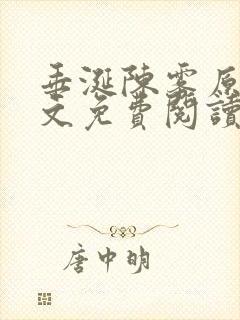 垂涎陳雾原
文免費閱讀
唐中明